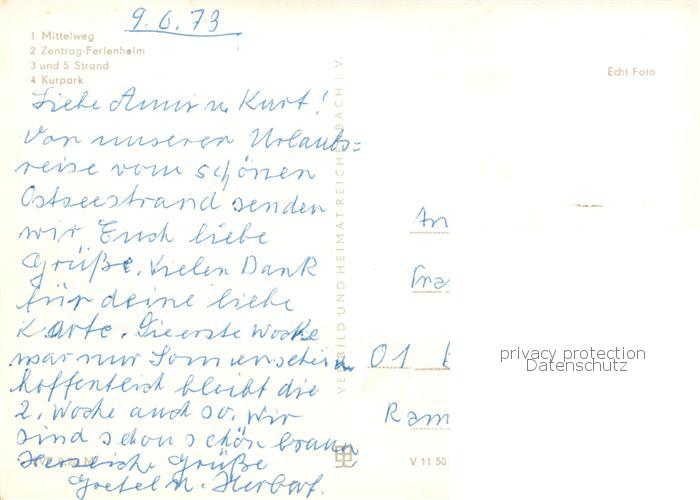 9.6.73
1 Mittelweg
2 Zentrag-Ferienheim
3 und 5 Strand
4 Kurpark
Echt Foto
Liebe Anni u. Kurt!
Von unserer Urlaubs=
reise vom schönen
Ostseestrand senden
wir Euch liebe
Grüße. Vielen Dank
für deine liebe
Karte. Die erste Woche
war nur Sonnenschein
hoffentlich bleibt die
2. Woche auch so. Wir
sind schon schön braun
Herzliche Grüße
Gretel u. Herbert.
VEB BILD UND HEIMAT REICHENBACH I. V.
An
Fra
01
Ram
V 11 50
privacy protection
Datenschutz